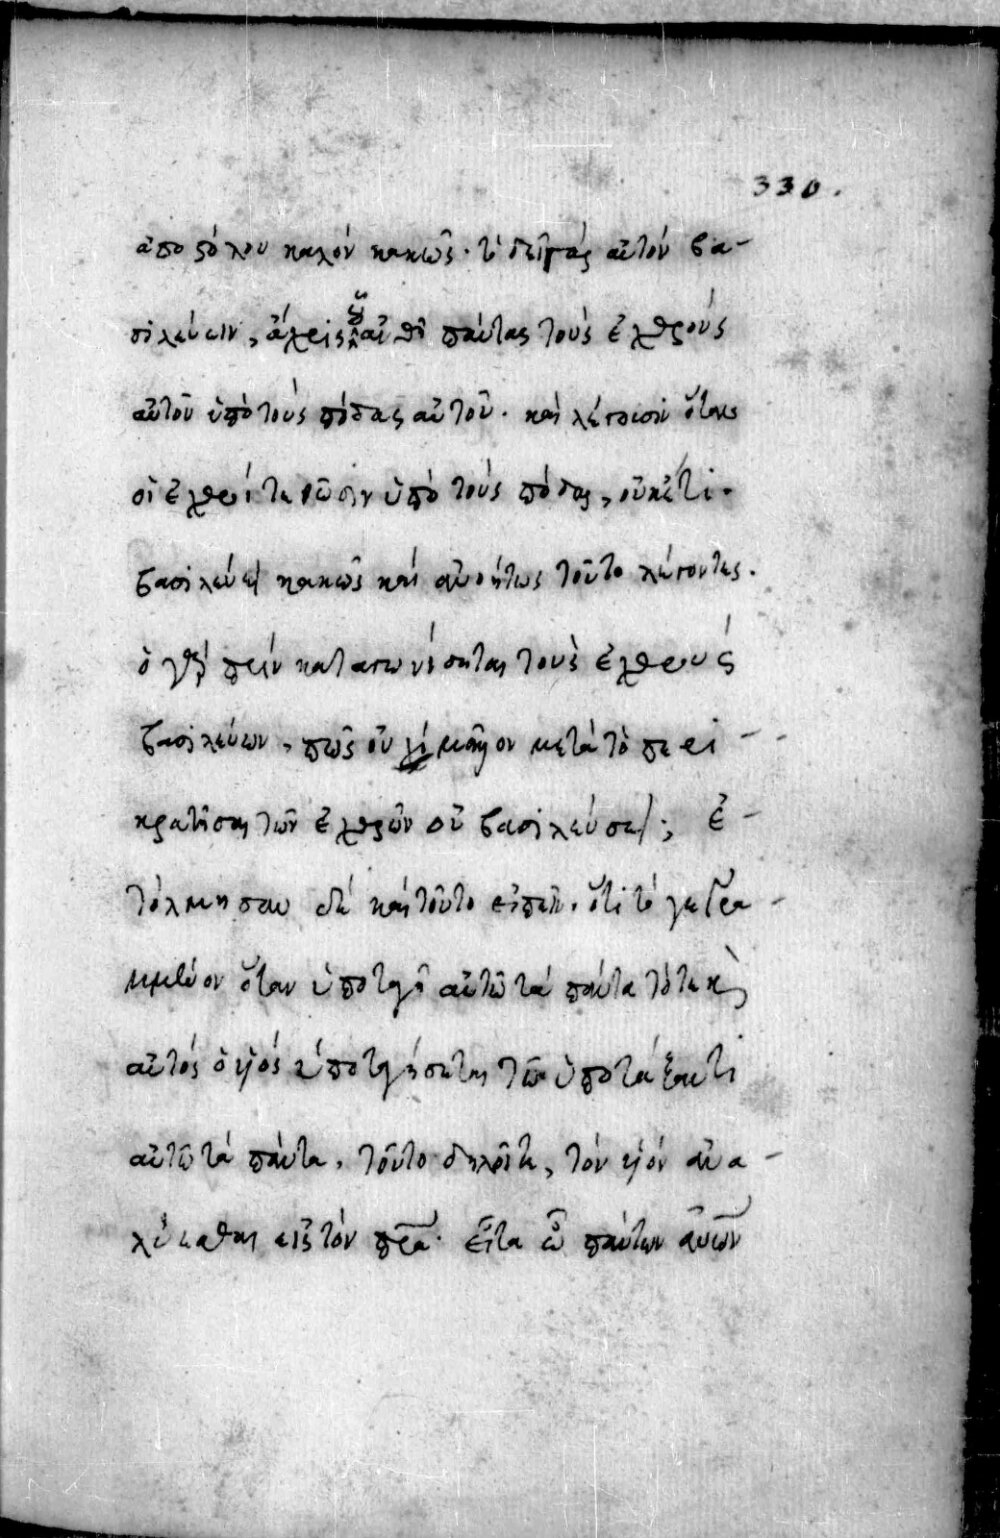 330.
ἀποστόλου καλόν κακῶς· τὸ δεῖ γὰρ αὐτόν βα-
σιλεύειν, ἄχρις οὗ ἂν θῇ πάντας τοὺς ἐχθρούς
αὐτοῦ ὑπὸ τοὺς πόδας αὐτοῦ. καὶ λέγουσιν ὅταν
οἱ ἐχθροί τεθῶσιν ὑπὸ τοὺς πόδας, οὐκέτι
βασιλεύει κακῶς καὶ ἀνοήτως τοῦτο λέγοντες.
ὁ γὰρ πρίν καταγωνίσηται τοὺς ἐχθρούς
βασιλεύων, πῶς οὐ μᾶλλον μετὰ τὸ περι
κρατῆσαι τῶν ἐχθρῶν οὐ βασιλεύσει; ἐ-
τόλμησαν δέ καὶ τοῦτο εἰπεῖν. ὅτι τό γεγρα-
μμένον ὅταν ὑποταγῇ αὐτῶ τά πάντα τότε κὶ
αὐτός ὁ υἱός ὑποταγήσεται τῶ ὑποτάξαντι
αὐτῶ τά πάντα, τοῦτο δηλοῖ τε, τόν υἱόν ἀνα-
λύεσθαι εἰς τόν πρα. εἶτα ὦ πάντων ἀνων